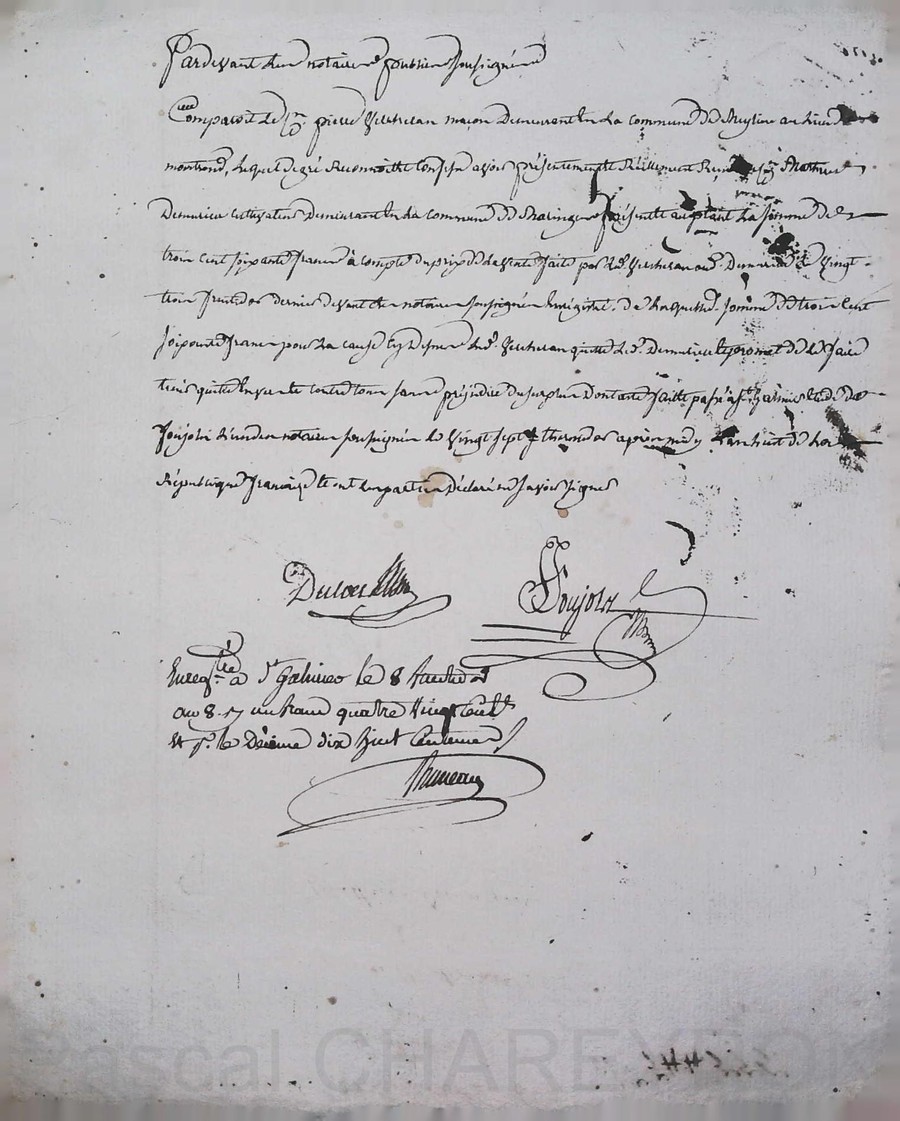 Pardevant les notaires publics soussignés
Comparoit le Cen pierre Verchelan maçon Demeurant en la commune de
montrond, lequel de gré Reconnoit et Confesse avoir présentement et Réellement Reçu Mathieu
Demurieu cultivateur Demeurant en la commune de présent et acceptant la somme de
trois cent soixante francs à compte du prix de la vente faite par led. Verchelan aud. Demurieu le vingt
trois fructidor dernier devant les notaires soussignés Enregistré. de laquelle somme de trois cent
soixante francs pour la cause led. Verchelan quitte led. Demurieu et promet de le faire
tenir quitte envers et contre tous sans préjudice du surplus Dont acte fait et passé à St galmier
Poujols l'un des notaires soussignés le vingt sept thermidor après midy l'an huit de la
République française et ont les parties Déclaré ne savoir signer
Poujols
Enregtré à St Galmier le 8 fructidor
an 8. un franc quatre vingt Centes
et pr. le Décime dix huit Centimes
Bruneau
Pascal CHAREYRON